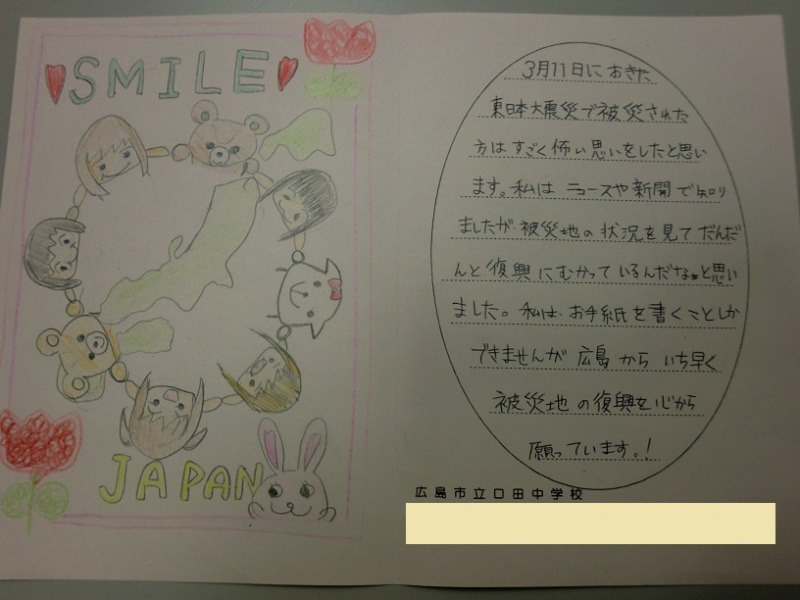 SMILE
JAPAN
3月11日におきた
東日本大震災で被災された
方はすごく怖い思いをしたと思い
ます。私は ニュースや新聞で知り
ましたが、被災地の状況を見てだんだ
んと復興にむかっているんだなぁと思い
ました。私は、お手紙を書くことしか
できませんが広島からいち早く
被災地の復興を心から
願っています。!
広島市立口田中学校